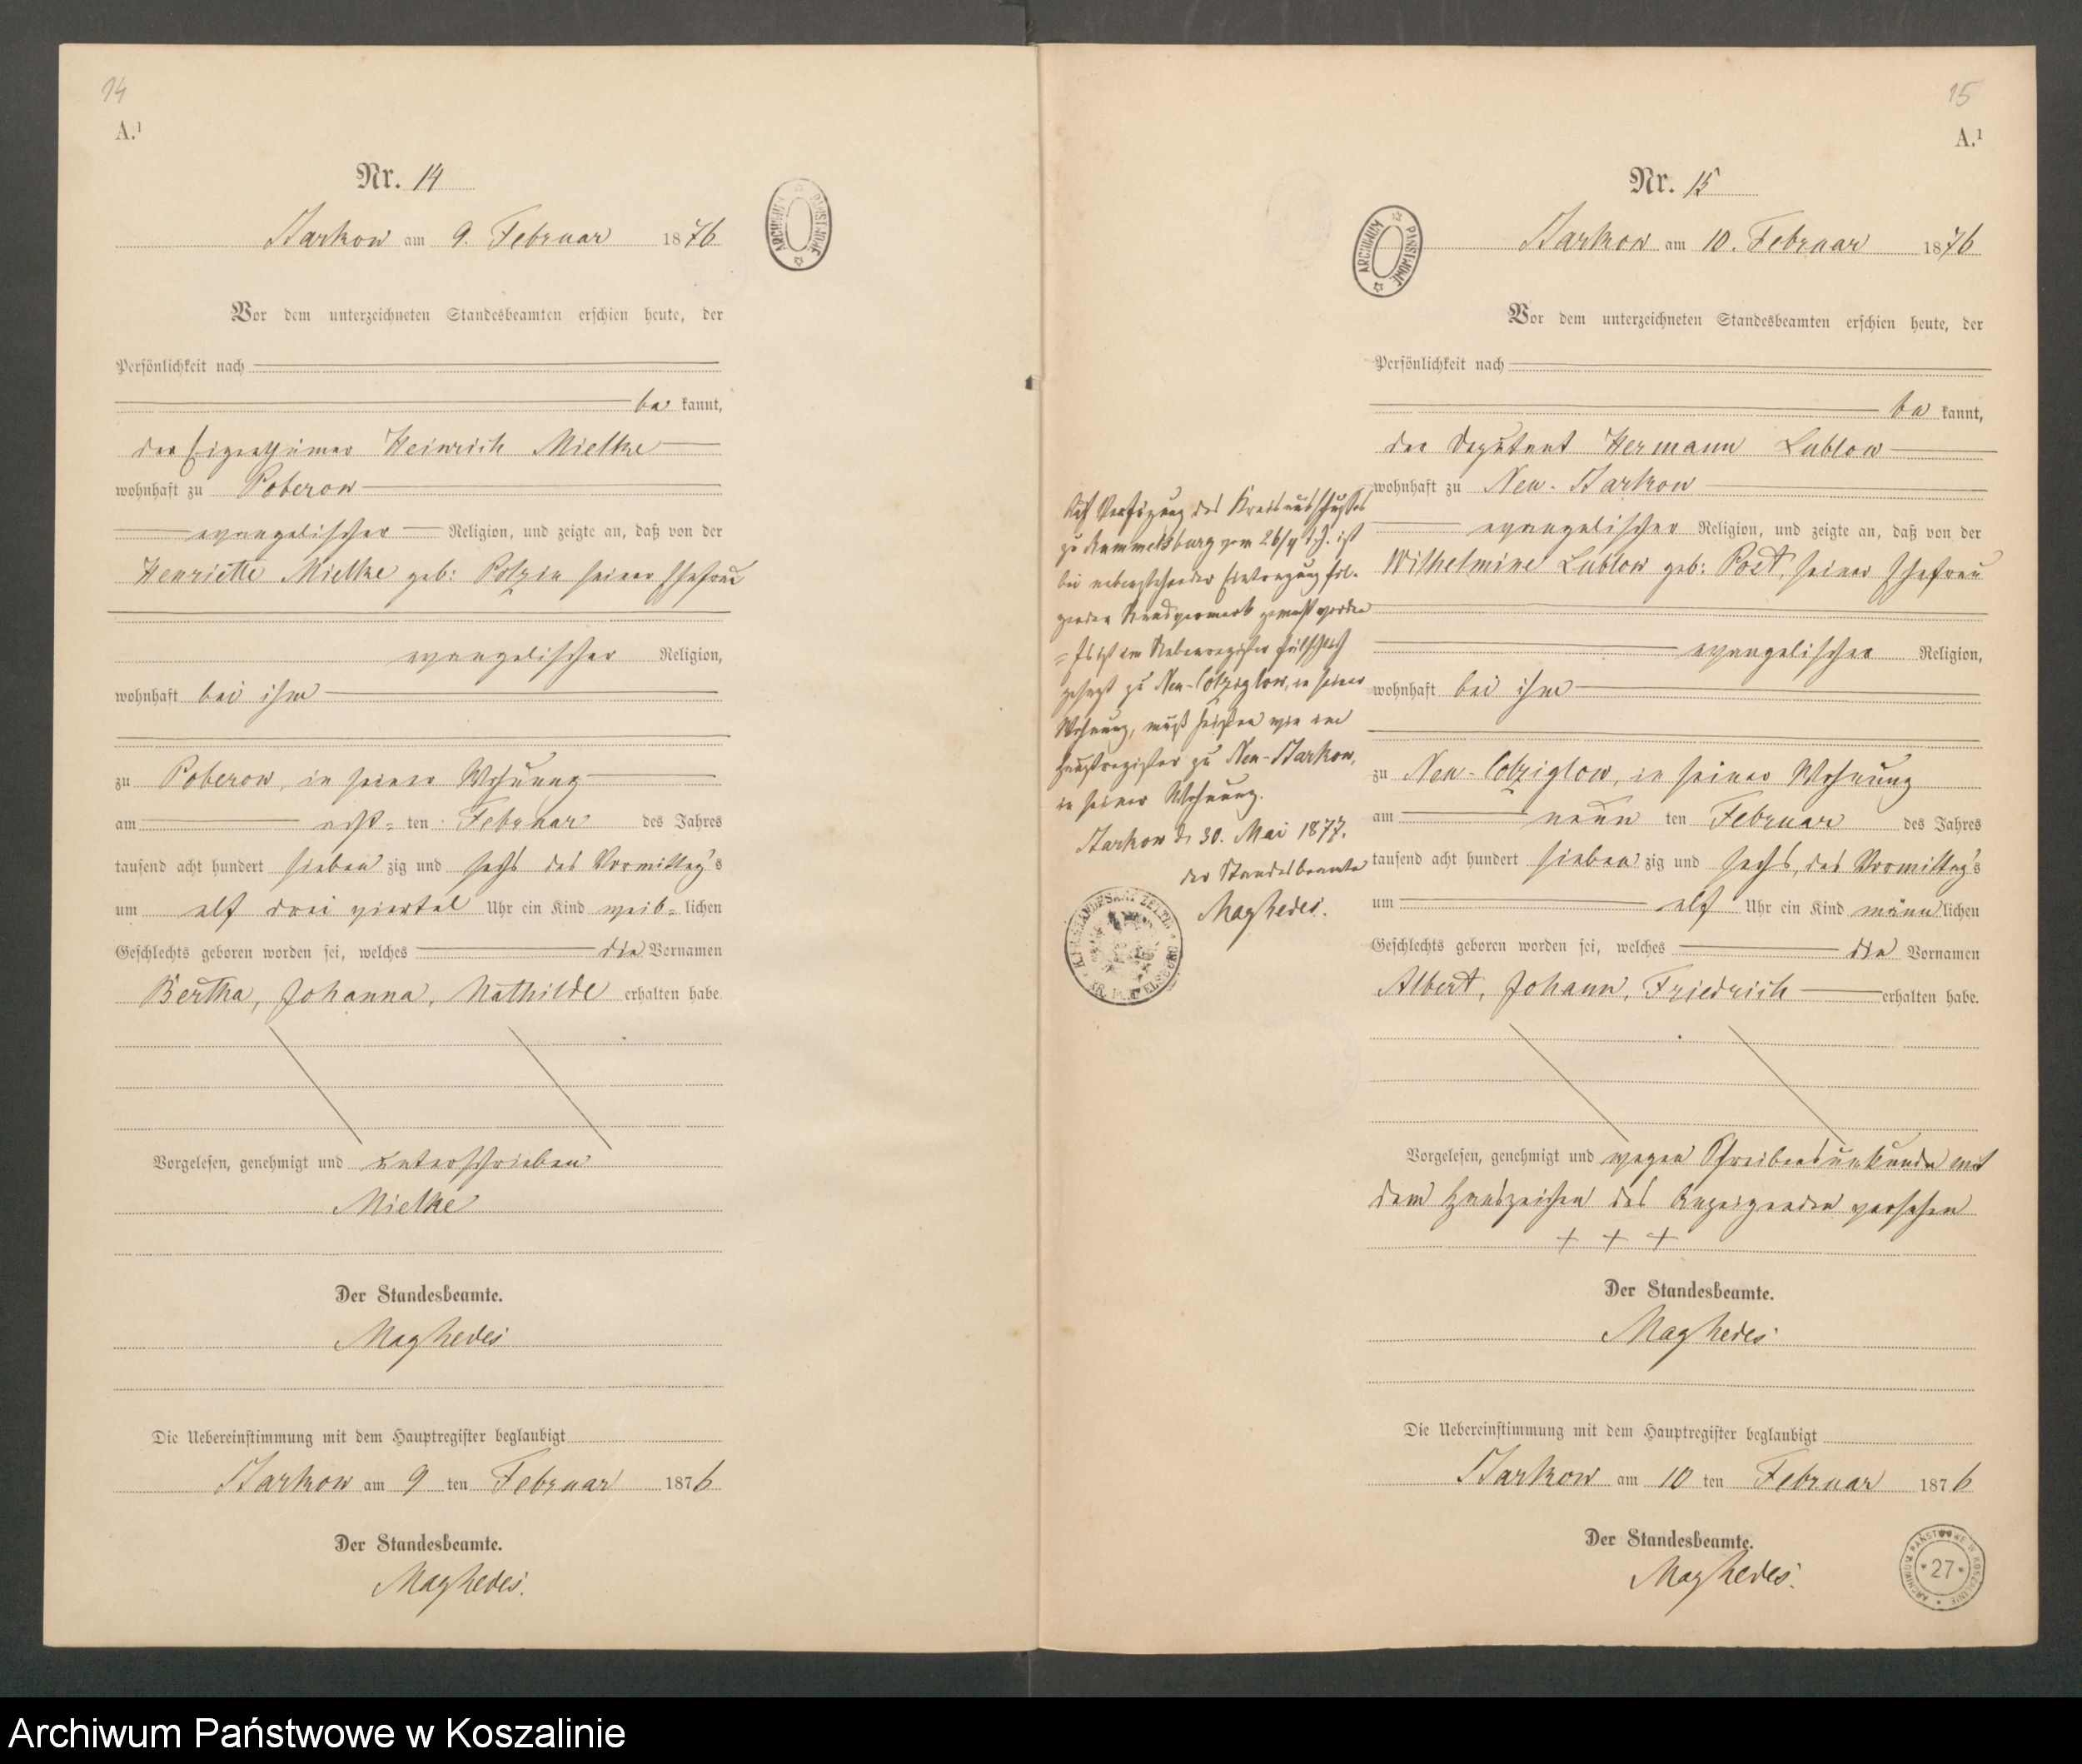 14
A.¹
Nr. 14
Starkow am 9. Februar 1876
Vor dem unterzeichneten Standesbeamten erschien heute, der
Persönlichkeit nach
be kannt,
der Eigenthümer Heinrich Mielke
wohnhaft zu Poberow
evangelischer Religion, und zeigte an, daß von der
Henriette Mielke geb: Polzin seiner Ehefrau
evangelischer Religion,
wohnhaft bei ihm
zu Poberow, in seiner Wohnung
am acht= ten Februar des Jahres
tausend acht hundert sieben zig und sechs des Vormittag's
um elf drei viertel Uhr ein Kind weib= lichen
Geschlechts geboren worden sei, welches die Vornamen
Bertha, Johanna, Mathilde erhalten habe.
Vorgelesen, genehmigt und unterschrieben
Mielke
Der Standesbeamte.
Maghedei
Die Uebereinstimmung mit dem Hauptregister beglaubigt
Starkow am 9 ten Februar 1876
Der Standesbeamte.
Maghedei.
ARCHIWUM PAŃSTWOWE
15
A.¹
Nr. 15
Starkow am 10. Februar 1876
Vor dem unterzeichneten Standesbeamten erschien heute, der
Persönlichkeit nach
be kannt,
der Deputant Hermann Lublow
wohnhaft zu Neu-Starkow
evangelischer Religion, und zeigte an, daß von der
Wilhelmine Lublow geb: Post, seiner Ehefrau
evangelischer Religion,
wohnhaft bei ihm
zu Neu-Colziglow, in seiner Wohnung
am neun ten Februar des Jahres
tausend acht hundert sieben zig und sechs, des Vormittag's
um elf Uhr ein Kind männ lichen
Geschlechts geboren worden sei, welches die Vornamen
Albert, Johann, Friedrich erhalten habe.
Vorgelesen, genehmigt und wegen Schreibensunkunde mit
dem Handzeichen des Anzeigenden versehen
+ + +
Der Standesbeamte.
Maghedei
Die Uebereinstimmung mit dem Hauptregister beglaubigt
Starkow am 10 ten Februar 1876
Der Standesbeamte.
Maghedei.
Auf Verfügung des Kreisausschusses
zu Rummelsburg vom 26/4 d. J. ist
bei nebenstehender Eintragung fol-
gender Randvermerk gemacht worden
= Es ist im Nebenregister fälschlich
gesagt zu Neu-Colziglow, in seiner
Wohnung, muß heißen wie im
Hauptregister zu Neu-Starkow,
in seiner Wohnung.
Starkow d. 30. Mai 1877.
der Standesbeamte
Maghedei.
ARCHIWUM PAŃSTWOWE
ARCHIWUM PAŃSTWOWE W KOSZALINIE
27
Archiwum Państwowe w Koszalinie